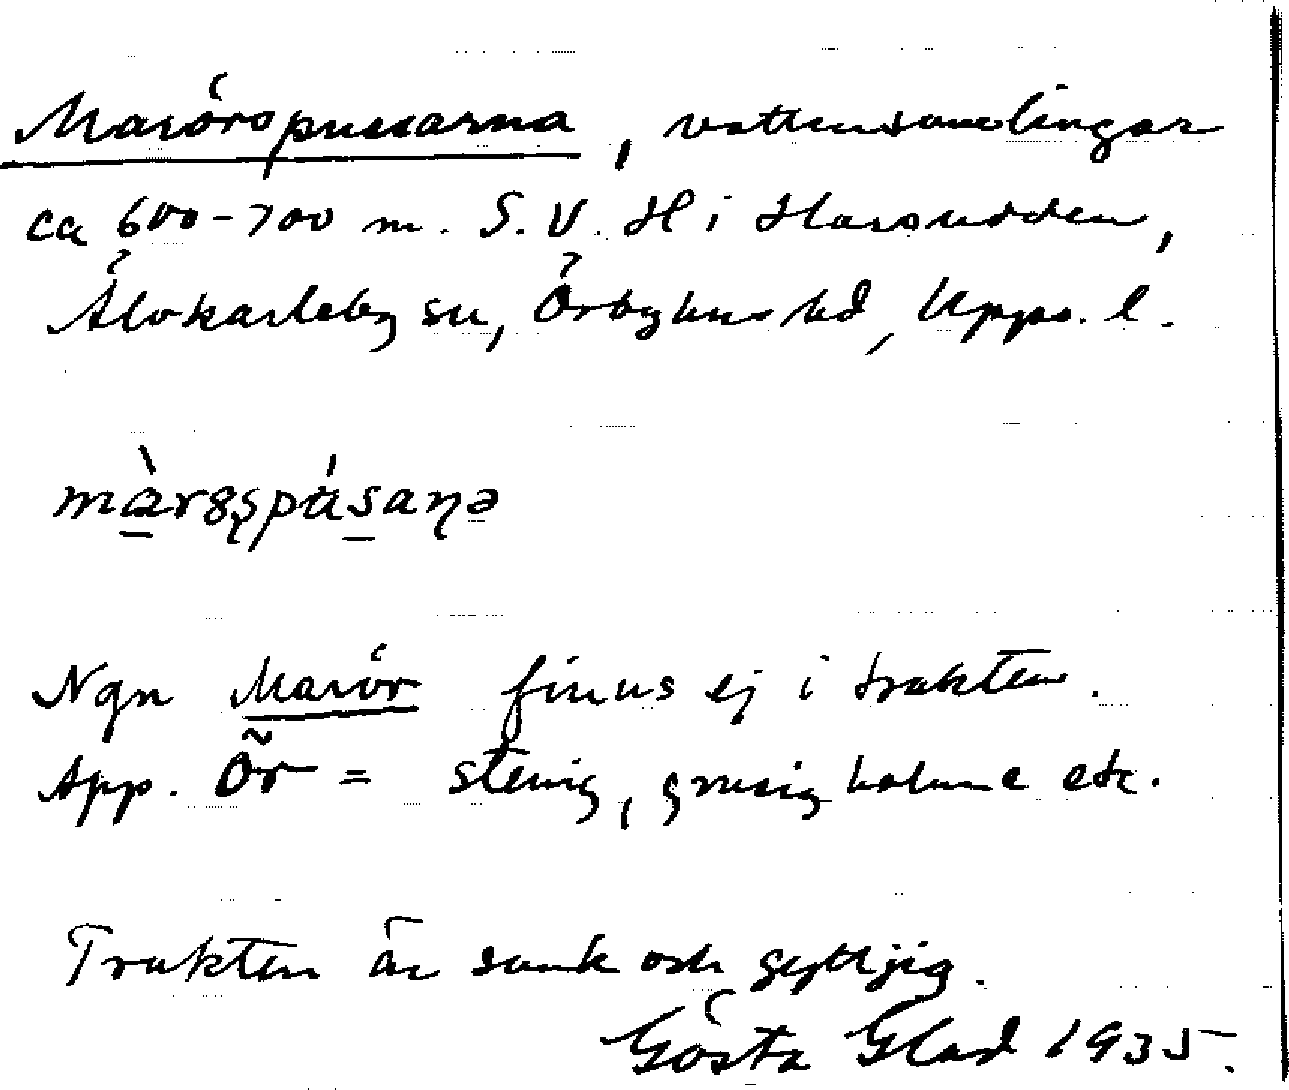 Marörspussarna, vattensamlingar
ca 600-700 m. S.V. H i Harsudden,
Älvkarleby sn, Örbyhus hd, Upps. l.
màrgspúsaṇə
Ngn Marör finns ej i trakten.
App. Ör = stenig, grusig holme etc.
Trakten är sank och gyttjig.
Gösta Glad 1935.